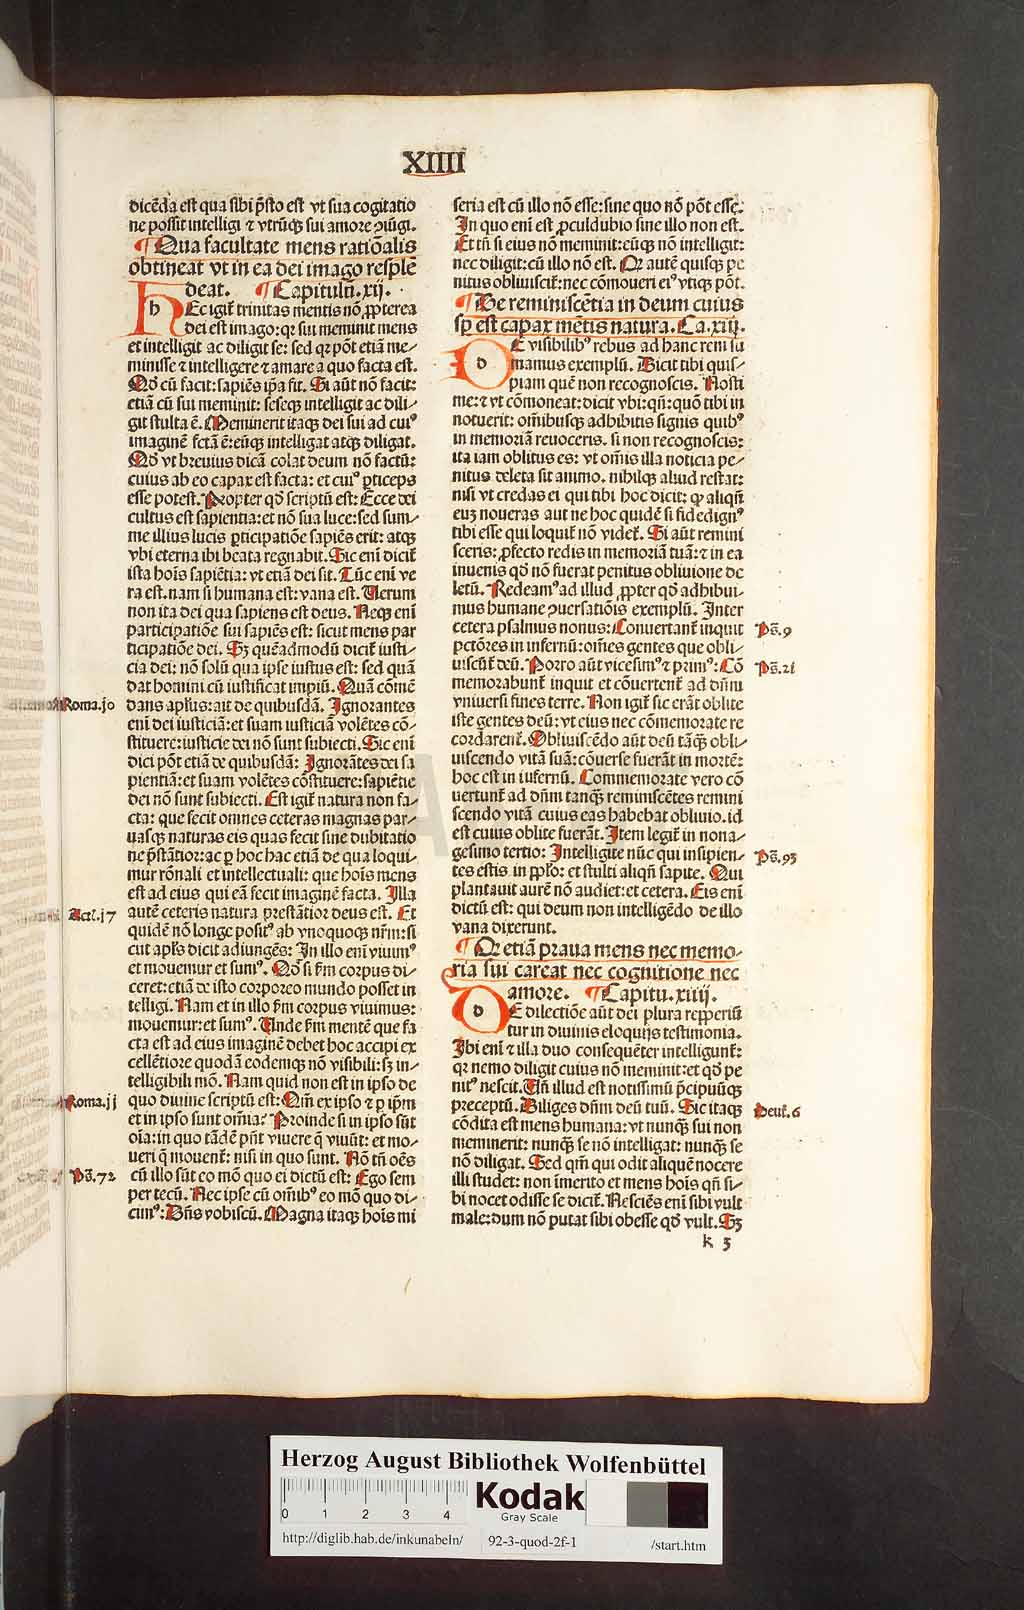 XIIII
dicēda est qua sibi p̄sto est vt sua cogitatio
ne possit intelligi ⁊ vtrūqꝫ sui amore ꝯiūgi.
¶Qua facultate mens ratiōalis
obtineat vt in ea dei imago resplē
deat. ¶Capitulū.xij.
hEc igit̃ trinitas mentis nō ꝓpterea
dei est imago: qꝛ sui meminit mens
et intelligit ac diligit se: sed qꝛ pōt etiā me⸗
minisse ⁊ intelligere ⁊ amare a quo facta est.
Qd̄ cū facit: sapiēs ip̄a fit. Si aūt nō facit:
etiā cū sui meminit: seseqꝫ intelligit ac dili⸗
git stulta ē. Meminerit itaqꝫ dei sui ad cuiꝰ
imaginē fctā ē: eūqꝫ intelligat atqꝫ diligat.
Qd̄ vt breuius dicā colat deum nō factū:
cuius ab eo capax est facta: et cuiꝰ ꝑticeps
esse potest. Propter qd̄ scriptū est: Ecce dei
cultus est sapientia: et nō sua luce: sed sum⸗
me illius lucis ꝑticipatiōe sapiēs erit: atqꝫ
vbi eterna ibi beata regnabit. Sic eni dicit̃
ista hoīs sapiētia: vt etiā dei sit. Tūc eni ve
ra est. nam si humana est: vana est. Uerum
non ita dei qua sapiens est deus. Neqꝫ eni
participatiōe sui sapiēs est: sicut mens par
ticipatiōe dei. Sꝫ quēadmodū dicit̃ iusti⸗
cia dei: nō solū qua ipse iustus est: sed quā
dat homini cū iustificat impiū. Quā cōmē
dans apl̄us: ait de quibusdā. Ignorantes
eni dei iusticiā: et suam iusticiā volētes cō⸗
stituere: iusticie dei nō sunt subiecti. Sic eni
dici pōt etiā de quibusdā: Ignorātes dei sa
pientiā: et suam volētes cōstituere: sapiētie
dei nō sunt subiecti. Est igit̃ natura non fa⸗
cta: que fecit omnes ceteras magnas par⸗
uasqꝫ naturas eis quas fecit sine dubitatio
ne p̄stātior: ac ꝑ hoc hac etiā de qua loqui⸗
mur rōnali et intellectuali: que hoīs mens
est ad eius qui eā fecit imaginē facta. Illa
autē ceteris natura prestātior deus est. Et
quidē nō longe positꝰ ab vnoquoqꝫ nr̄m: si
cut apl̄s dicit adiungēs: In illo eni viuimꝰ
et mouemur et sumꝰ. Qd̄ si s̄m corpus di⸗
ceret: etiā de isto corporeo mundo posset in
telligi. Nam et in illo s̄m corpus viuimus:
mouemur: et sumꝰ. Unde s̄m mentē que fa
cta est ad eius imaginē debet hoc accipi ex
cellētiore quodā eodemqꝫ nō visibili: sꝫ in⸗
telligibili mō. Nam quid non est in ipso de
quo diuine scriptū est: Qm̄ ex ipso ⁊ ꝑ ip̄m
et in ipso sunt omīa? Proinde si in ipso sūt
oīa: in quo tādē pn̄t viuere q̄ viuūt: et mo⸗
ueri q̄ mouent̃: nisi in quo sunt. Nō tn̄ oēs
cū illo sūt eo mō quo ei dictū est: Ego sem
per tecū. Nec ipse cū om̄ibꝰ eo mō quo di⸗
cimꝰ: Dn̄s vobiscū. Magna itaqꝫ hoīs mi
Roma.jo
Act.j7
Roma.jj
Ps̄.72
seria est cū illo nō esse: sine quo nō pōt esse.
In quo eni est ꝓculdubio sine illo non est.
Et tn̄ si eius nō meminit: eūqꝫ nō intelligit:
nec diligit: cū illo nō est. Qꝛ autē quisqꝫ pe
nitus obliuiscit̃: nec cōmoueri eiꝰ vtiqꝫ pōt.
¶De reminiscētia in deum cuius
sp̄ est capax mētis natura. Ca.xiij.
dE visibilibꝰ rebus ad hanc rem su
mamus exemplū. Dicit tibi quis⸗
piam quē non recognoscis. Nosti
me: ⁊ vt cōmoneat: dicit vbi: qn̄: quō tibi in
notuerit: om̄ibusqꝫ adhibitis signis quibꝰ
in memoriā reuoceris. si non recognoscis:
ita iam oblitus es: vt om̄is illa noticia pe⸗
nitus deleta sit animo. nihilqꝫ aliud restat:
nisi vt credas ei qui tibi hoc dicit: ꝙ aliqn̄
euꝫ noueras aut ne hoc quidē si fidedignꝰ
tibi esse qui loquit̃ nō videt̃. Si aūt remini
sceris: ꝓfecto redis in memoriā tuā: ⁊ in ea
inuenis qd̄ nō fuerat penitus obliuione de
letū. Redeamꝰ ad illud ꝓpter qd̄ adhibui⸗
mus humane ꝯuersatiōis exemplū. Inter
cetera psalmus nonus: Conuertant̃ inquit
pctōres in infernū: om̄es gentes que obli⸗
uiscūt̃ deū. Porro aūt vicesimꝰ ⁊ primꝰ: Cō
memorabunt̃ inquit et cōuertent̃ ad dn̄m
vniuersi fines terre. Non igit̃ sic erāt oblite
iste gentes deū: vt eius nec cōmemorate re
cordarent̃. Obliuiscēdo aūt deū tāqꝫ obli⸗
uiscendo vitā suā: cōuerse fuerāt in mortē:
hoc est in infernū. Commemorate vero cō
uertunt̃ ad dn̄m tanqꝫ reminiscētes remini
scendo vitā cuius eas habebat obliuio. id
est cuius oblite fuerāt. Item legit̃ in nona⸗
gesimo tertio: Intelligite nūc qui insipien⸗
tes estis in pp̄lo: et stulti aliqn̄ sapite. Qui
plantauit aurē nō audiet: et cetera. Eis eni
dictū est: qui deum non intelligēdo de illo
vana dixerunt.
¶Qꝛ etiā praua mens nec memo⸗
ria sui careat nec cognitione nec
amore. ¶Capitu.xiiij.
dE dilectiōe aūt dei plura repperiū
tur in diuinis eloquijs testimonia.
Ibi eni ⁊ illa duo consequēter intelligunt̃:
qꝛ nemo diligit cuius nō meminit: et qd̄ pe
nitꝰ nescit. Un̄ illud est notissimū p̄cipuūqꝫ
preceptū. Diliges dn̄m deū tuū. Sic itaqꝫ
cōdita est mens humana: vt nunqꝫ sui non
meminerit: nunqꝫ se nō intelligat: nunqꝫ se
nō diligat. Sed qm̄ qui odit aliquē nocere
illi studet: non īmerito et mens hoīs qn̄ si⸗
bi nocet odisse se dicit̃. Nesciēs eni sibi vult
male: dum nō putat sibi obesse qd̄ vult. Sꝫ
Ps̄.9
Ps̄.2i
Ps̄.93
Deut̃.6
k 3
Herzog August Bibliothek Wolfenbüttel
0 1 2 3 4
Kodak
Gray Scale
http://diglib.hab.de/inkunabeln/ 92-3-quod-2f-1 /start.htm